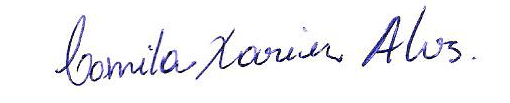 Camila Xavier Alves.